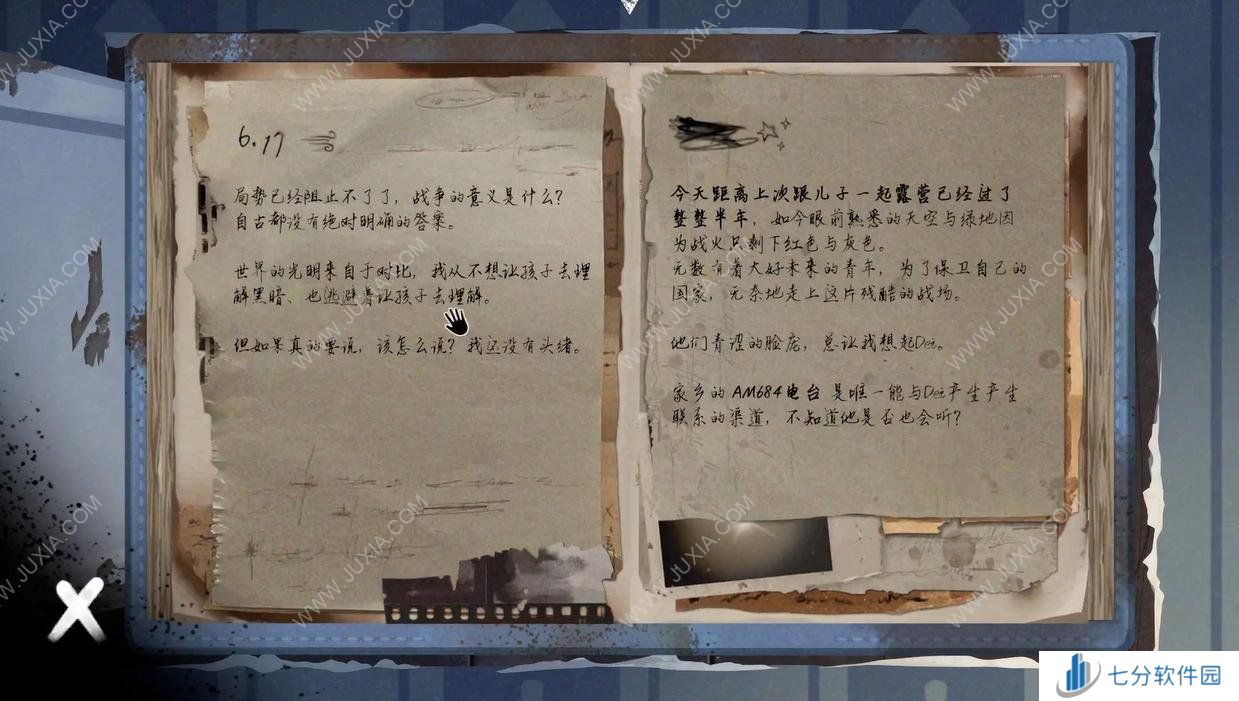 6.17
局势已经阻止不了了，战争的意义是什么？
自古都没有绝对明确的答案。
世界的光明来自于对比，我从不想让孩子去理
解黑暗、也逃避着让孩子去理解。
但如果真的要说，该怎么说？我还没有头绪。
今天距离上次跟儿子一起露营已经过了
整整半年，如今眼前熟悉的天空与绿地因
为战火只剩下红色与灰色。
无数有着大好未来的青年，为了保卫自己的
国家，无奈地走上这片残酷的战场。
他们青涩的脸庞，总让我想起Dei。
家乡的 AM684电台 是唯一能与Dei产生产生
联系的渠道，不知道他是否也会听？
WWW.JUXIA.COM
七分软件园